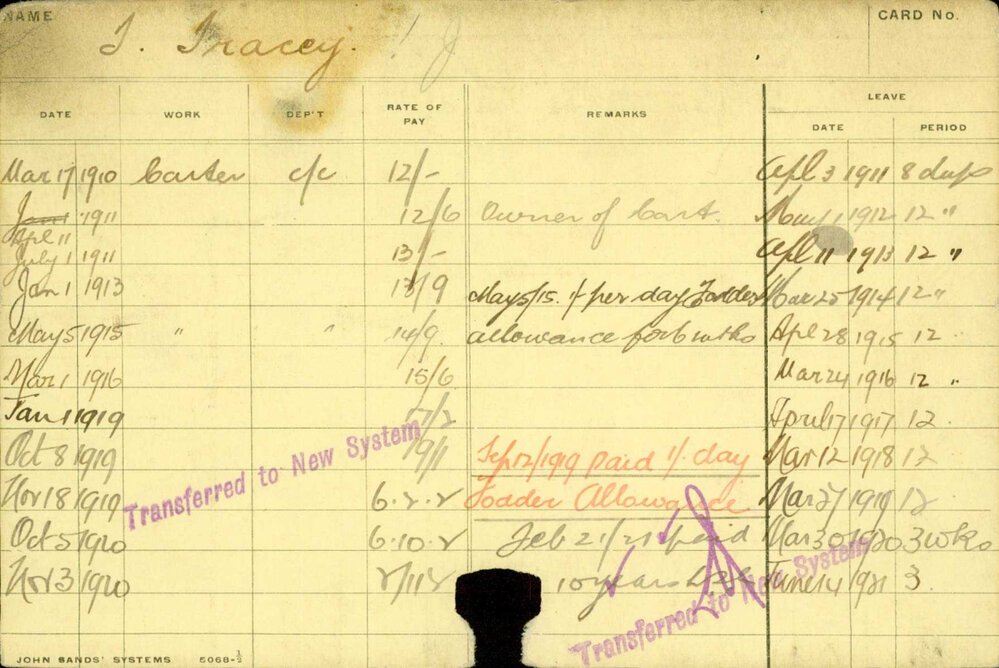 NAME T. Tracey. CARD No.
LEAVE
DATE WORK DEP'T RATE OF PAY REMARKS DATE PERIOD
Mar 17 1910 Carter c/c 12/- Apl 3 1911 8 days
Jan 1 1911 12/6 Owner of Cart. May 1 1912 12 "
Apl 11
July 1 1911 13/- Apl 11 1913 12 "
Jan 1 1913 13/9 May 5/15. 1/- per day Fodder Mar 25 1914 12 "
May 5 1915 " " 14/9 allowance for 6 mths Apl 28 1915 12
Mar 1 1916 15/6 Mar 24 1916 12 "
Jan 1 1919 17/2 April 17 1917 12
Oct 8 1919 19/1 Sep 12/1919 paid 1/- day Mar 12 1918 12
Nov 18 1919 6.2.2 Fodder Allowance Mar 27 1919 12
Transferred to New System
Oct 5 1920 6.10.2 Feb 21/21 paid Mar 30 1920 3 wks
Nov 3 1920 10 years June 14 1921 3
Transferred to New System
JOHN SANDS' SYSTEMS 5068-½